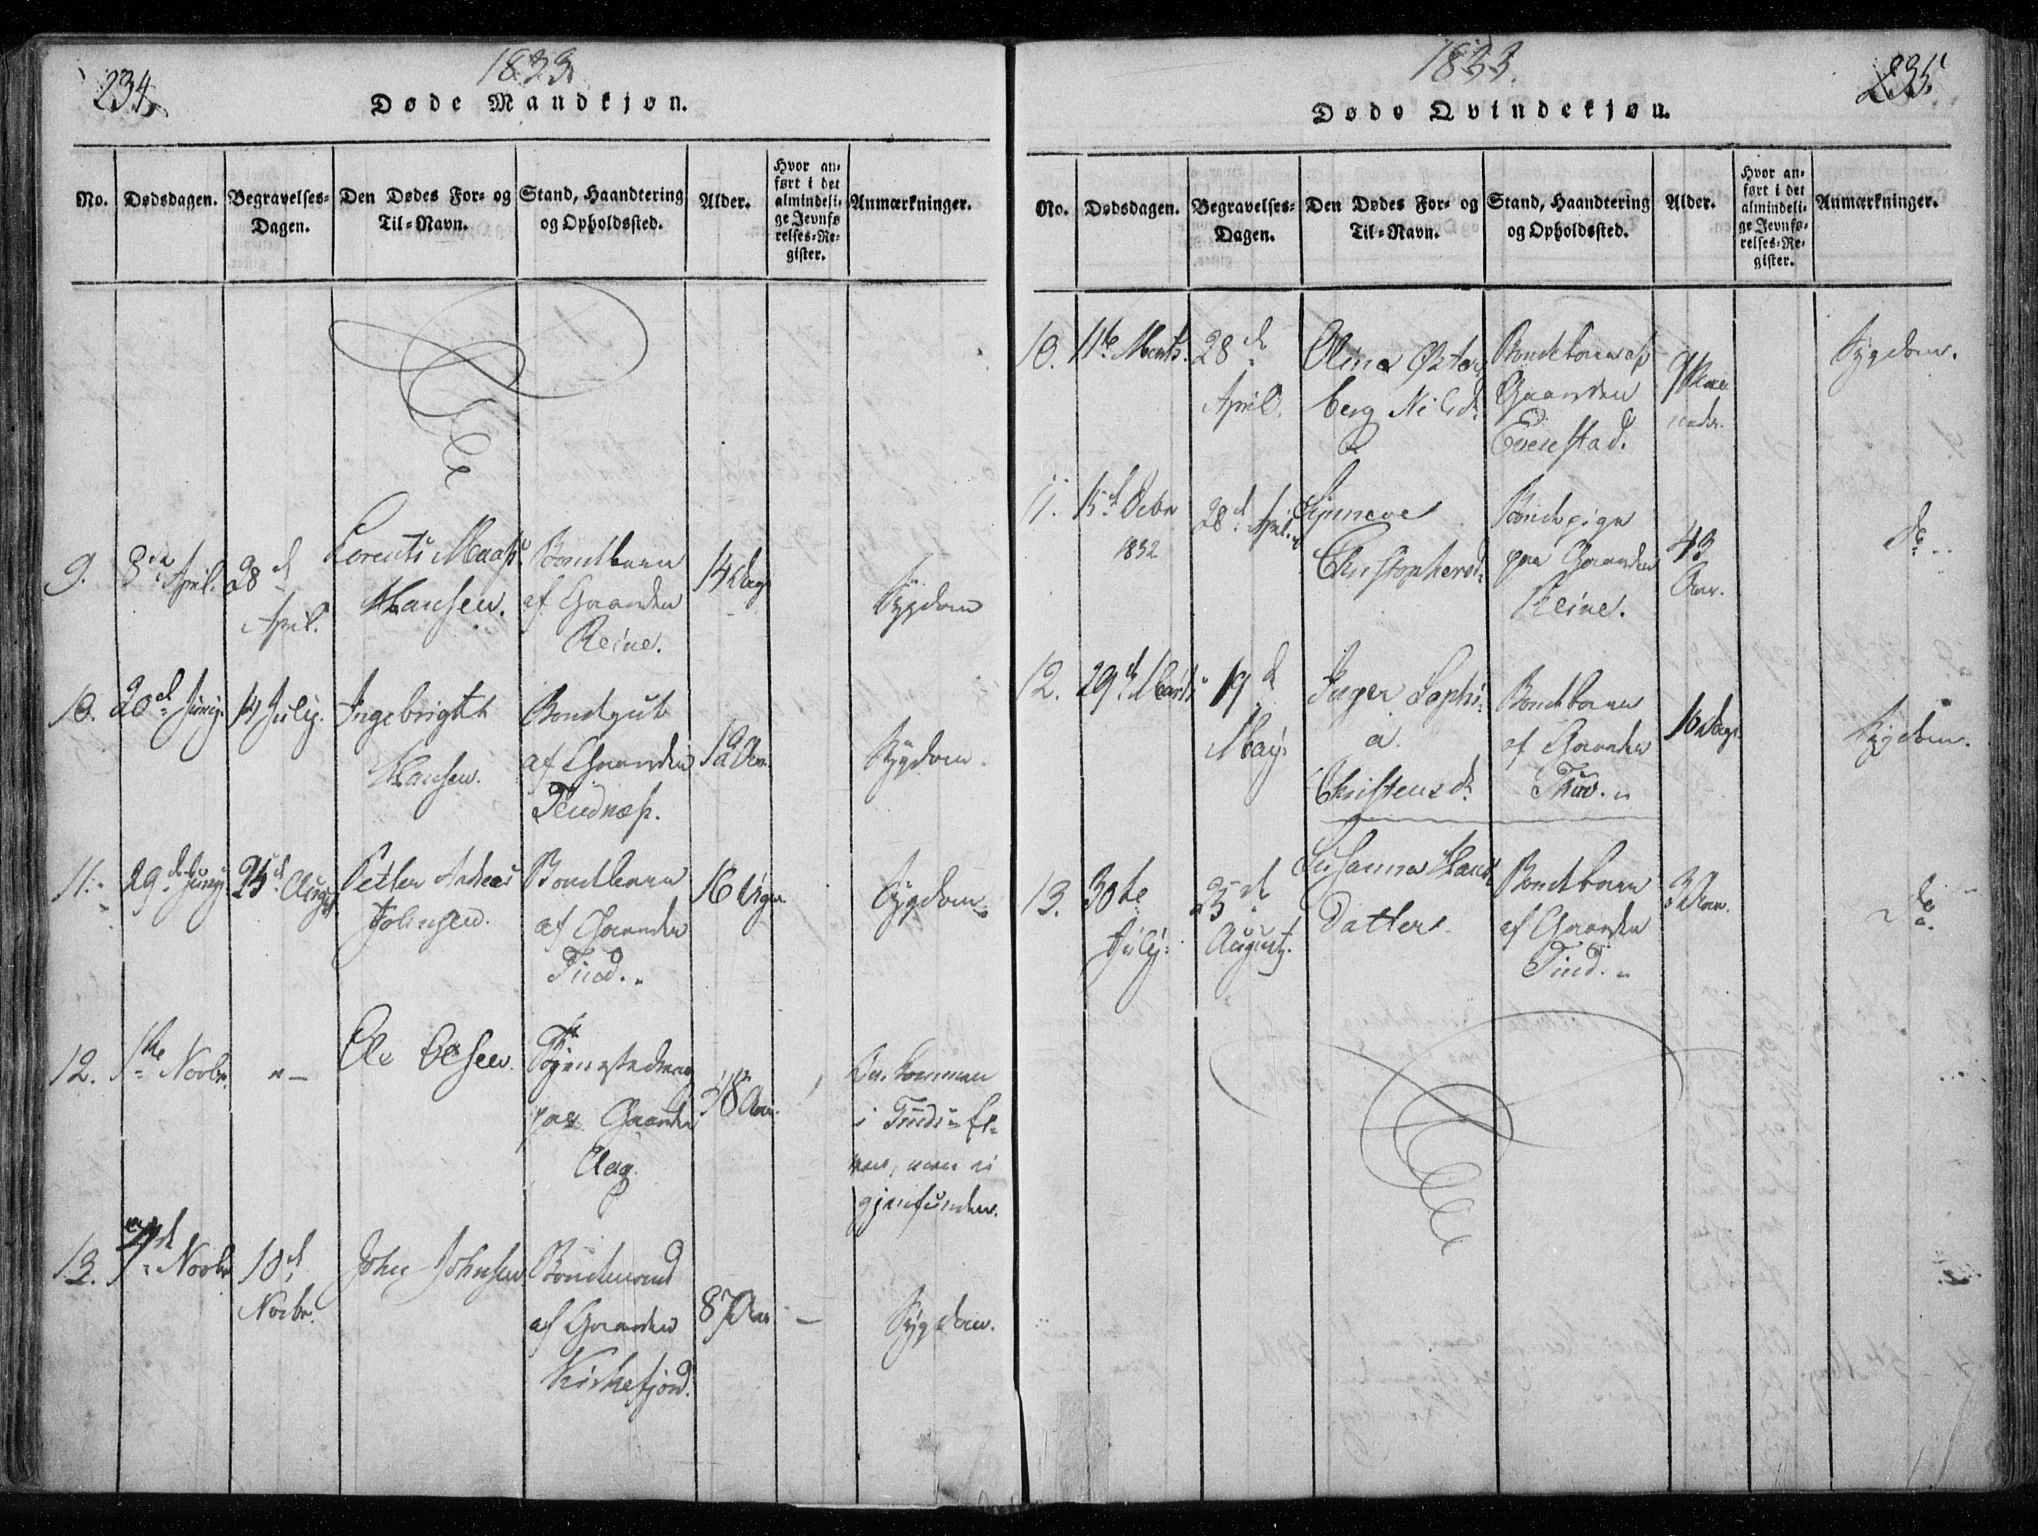 234.
1833.
Døde Mandkjøn.
No.
Dødsdagen.
Begravelses-
Dagen.
Den Dødes For- og
Til-Navn.
Stand, Haandtering
og Opholdssted.
Alder.
Hvor an-
ført i det
almindeli-
ge Jevnfø-
relses-Re-
gister.
Anmærkninger.
9.
8de April.
28de
April.
Lorents Maass
Hansen.
Bondebarn
af Gaarden
Reine.
14 Dage
Sygdom
10.
20de Junij.
14 Julij.
Ingebrigt
Hansen.
Bondegut
af Gaarden
Tendnæss.
12 Aar.
Sygdom.
11.
29de Junij
25de August
Petter Andreas
Johnsen.
Bondebarn
af Gaarden
Tind.
16 Uger
Sygdom
12.
1ste Novbr.
" –
Ole Olsen.
paa Gaarden
Aag.
18 Aar.
Omkommen
i Tinds-El-
ven, men ei
gjenfunden.
13.
Novbr
10de
Novbr.
John Johnsen
Bondemand
af Gaarden
Kirkefjord.
87 Aar
–
Sygdom.
1833.
235.
Døde Qvindekjøn.
No.
Dødsdagen.
Begravelses-
Dagen.
Den Dødes For- og
Til-Navn.
Stand, Haandtering
og Opholdssted.
Alder.
Hvor an-
ført i det
almindeli-
ge Jevnfø-
relses-Re-
gister.
Anmærkninger.
10.
11te Marts.
28de
April.
Olina Øster-
berg Nilsd.
Bondebarn af
Gaarden
Evenstad.
9 Maa-
neder.
Sygdom.
11.
15de Debr
1832
28de April.
Synneve
Christophersd.
Bondepige
paa Gaarden
Reine.
43
Aar.
do
12.
29de Marts
19de
May.
Inger Sophi-
a
Christensd.
Bondebarn
af Gaarden
Tind.
10 Dage.
Sygdom.
13.
30te
Julij.
25de
August.
Susanna Hans
Datter.
Bondebarn
af Gaarden
Tind.
3 Aar.
do